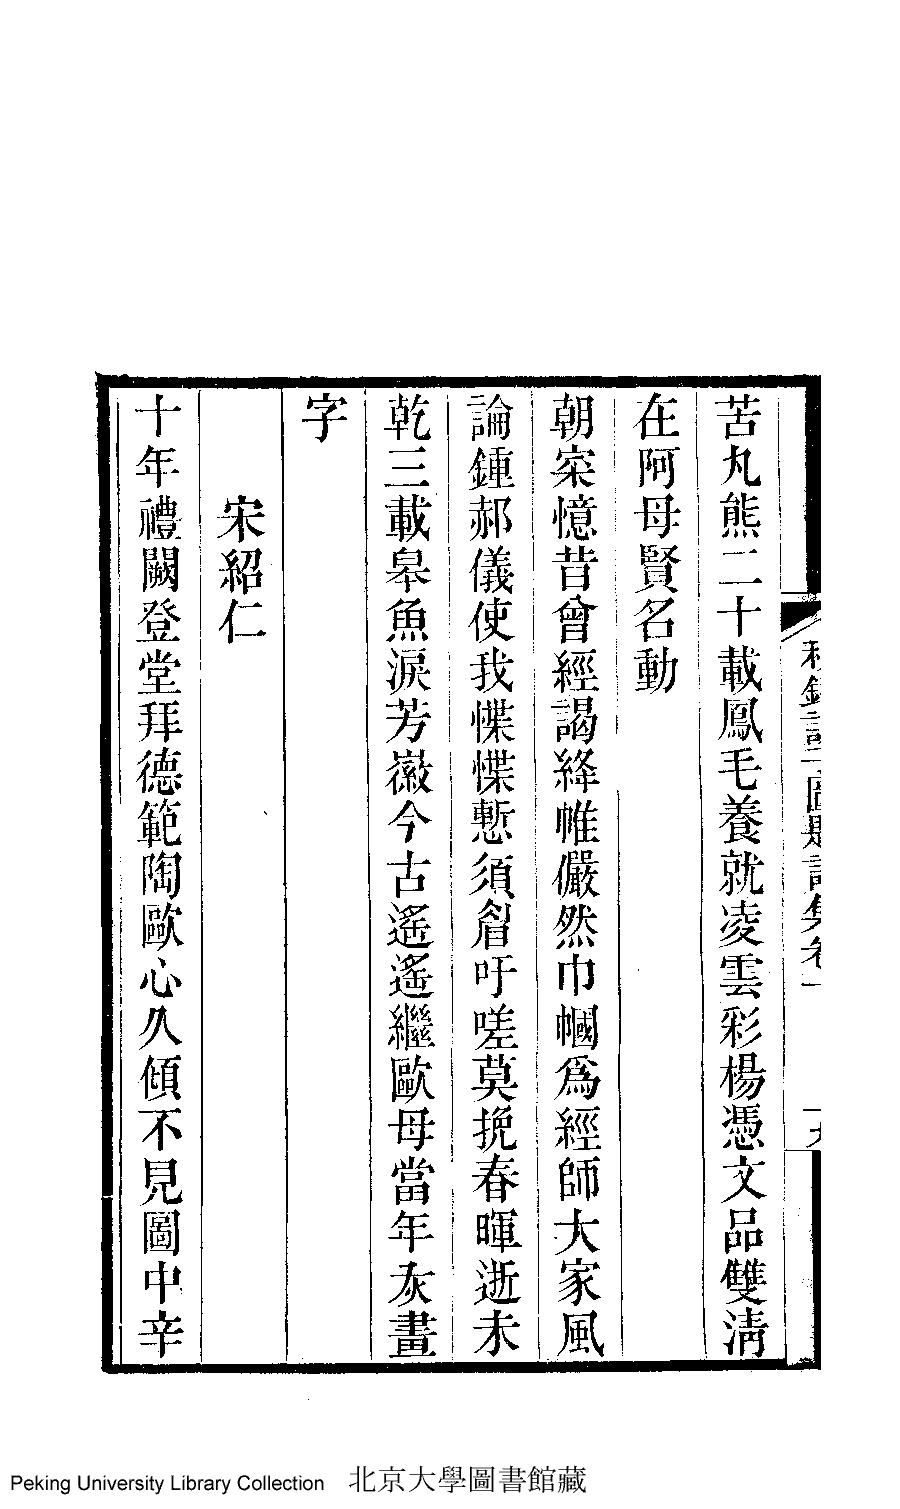 苦丸熊二十載鳳毛養就凌雲彩楊憑文品雙淸
在阿母賢名動
朝寀憶昔曾經謁絳帷儼然巾幗爲經師大家風
論鍾郝儀使我惵惵慙須眉吁嗟莫挽春暉逝未
乾三載皋魚淚芳徽今古遙遙繼歐母當年灰畫
字
宋紹仁
十年禮闕登堂拜德範陶歐心久傾不見圖中辛
Peking University Library Collection 北京大學圖書館藏